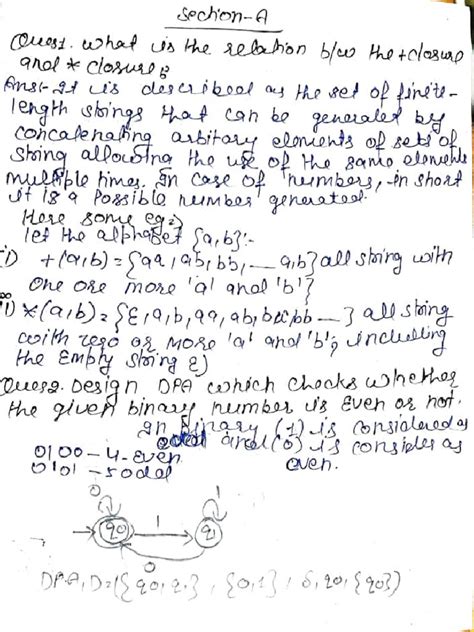 Section-A
Ques1. what is the relation b/w the +closure
and * closure?
Ans:- It is described as the set of finite-
length strings that can be generated by
concatenating arbitory elements of sets of
string allowing the use of the same elements
multiple times. In case of numbers, in short
it is a possible number generated.
Here some eg:
let the alphabet {a,b}:-
i) +(a,b) = {aa, ab, bb, __ a,b} all string with
one ore more 'a' and 'b'}
ii) *(a,b) = {ε, a, b, aa, ab, bb __} all string
with zero or more 'a' and 'b', including
the Empty string ε)
Ques2. Design DPA which checks whether
the given binary number is Even or not.
In Binary (1) is considered as
odd and (0) is consider as
0100 - 4 - Even even.
0101 - 5 odd
0 1
q0 1 q1
0
DPA, D = ({q0, q1}, {0,1}, δ, q0, {q0})